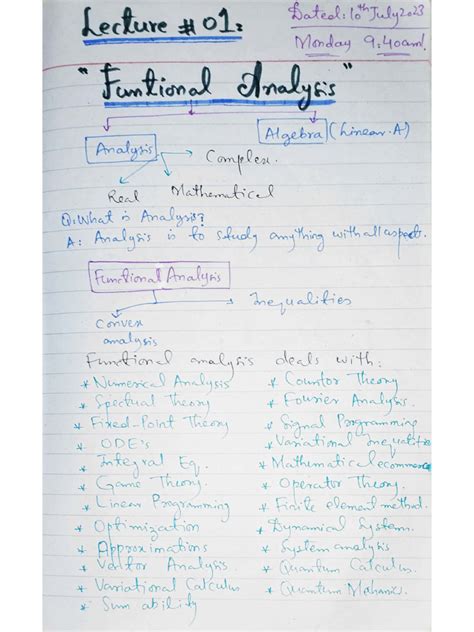 Lecture # 01:
Dated: 10th July 2023
Monday 9:40am!
"Funtional Analysis"
Analysis
Algebra (Linear.A)
Complex.
Real
Mathematical
Q: What is Analysis?
A: Analysis is to study anything with all aspects.
Functional Analysis
Inequalities
Convex
analysis
Functional analysis deals with:
* Numerical Analysis
* Spectual Theory
* Fixed-Point Theory
* ODE's
* Integral Eq.
* Game Theory.
* Linear Programming
* Optimization
* Approximations
* Vector Analysis.
* Variational Calculus
* Sum ability
* Countor Theory
* Fourier Analysis.
* Signal Programming
* Variational Inequalities
* Mathematical ecommerce
* Operator Theory.
* Finite element method.
* Dynamical System.
* System analysis
* Quantum Calculus.
* Quantum Mahanics.